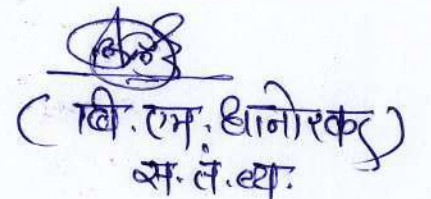 ( व्ही. एम. धानोरकर )
स. तं. व्य.